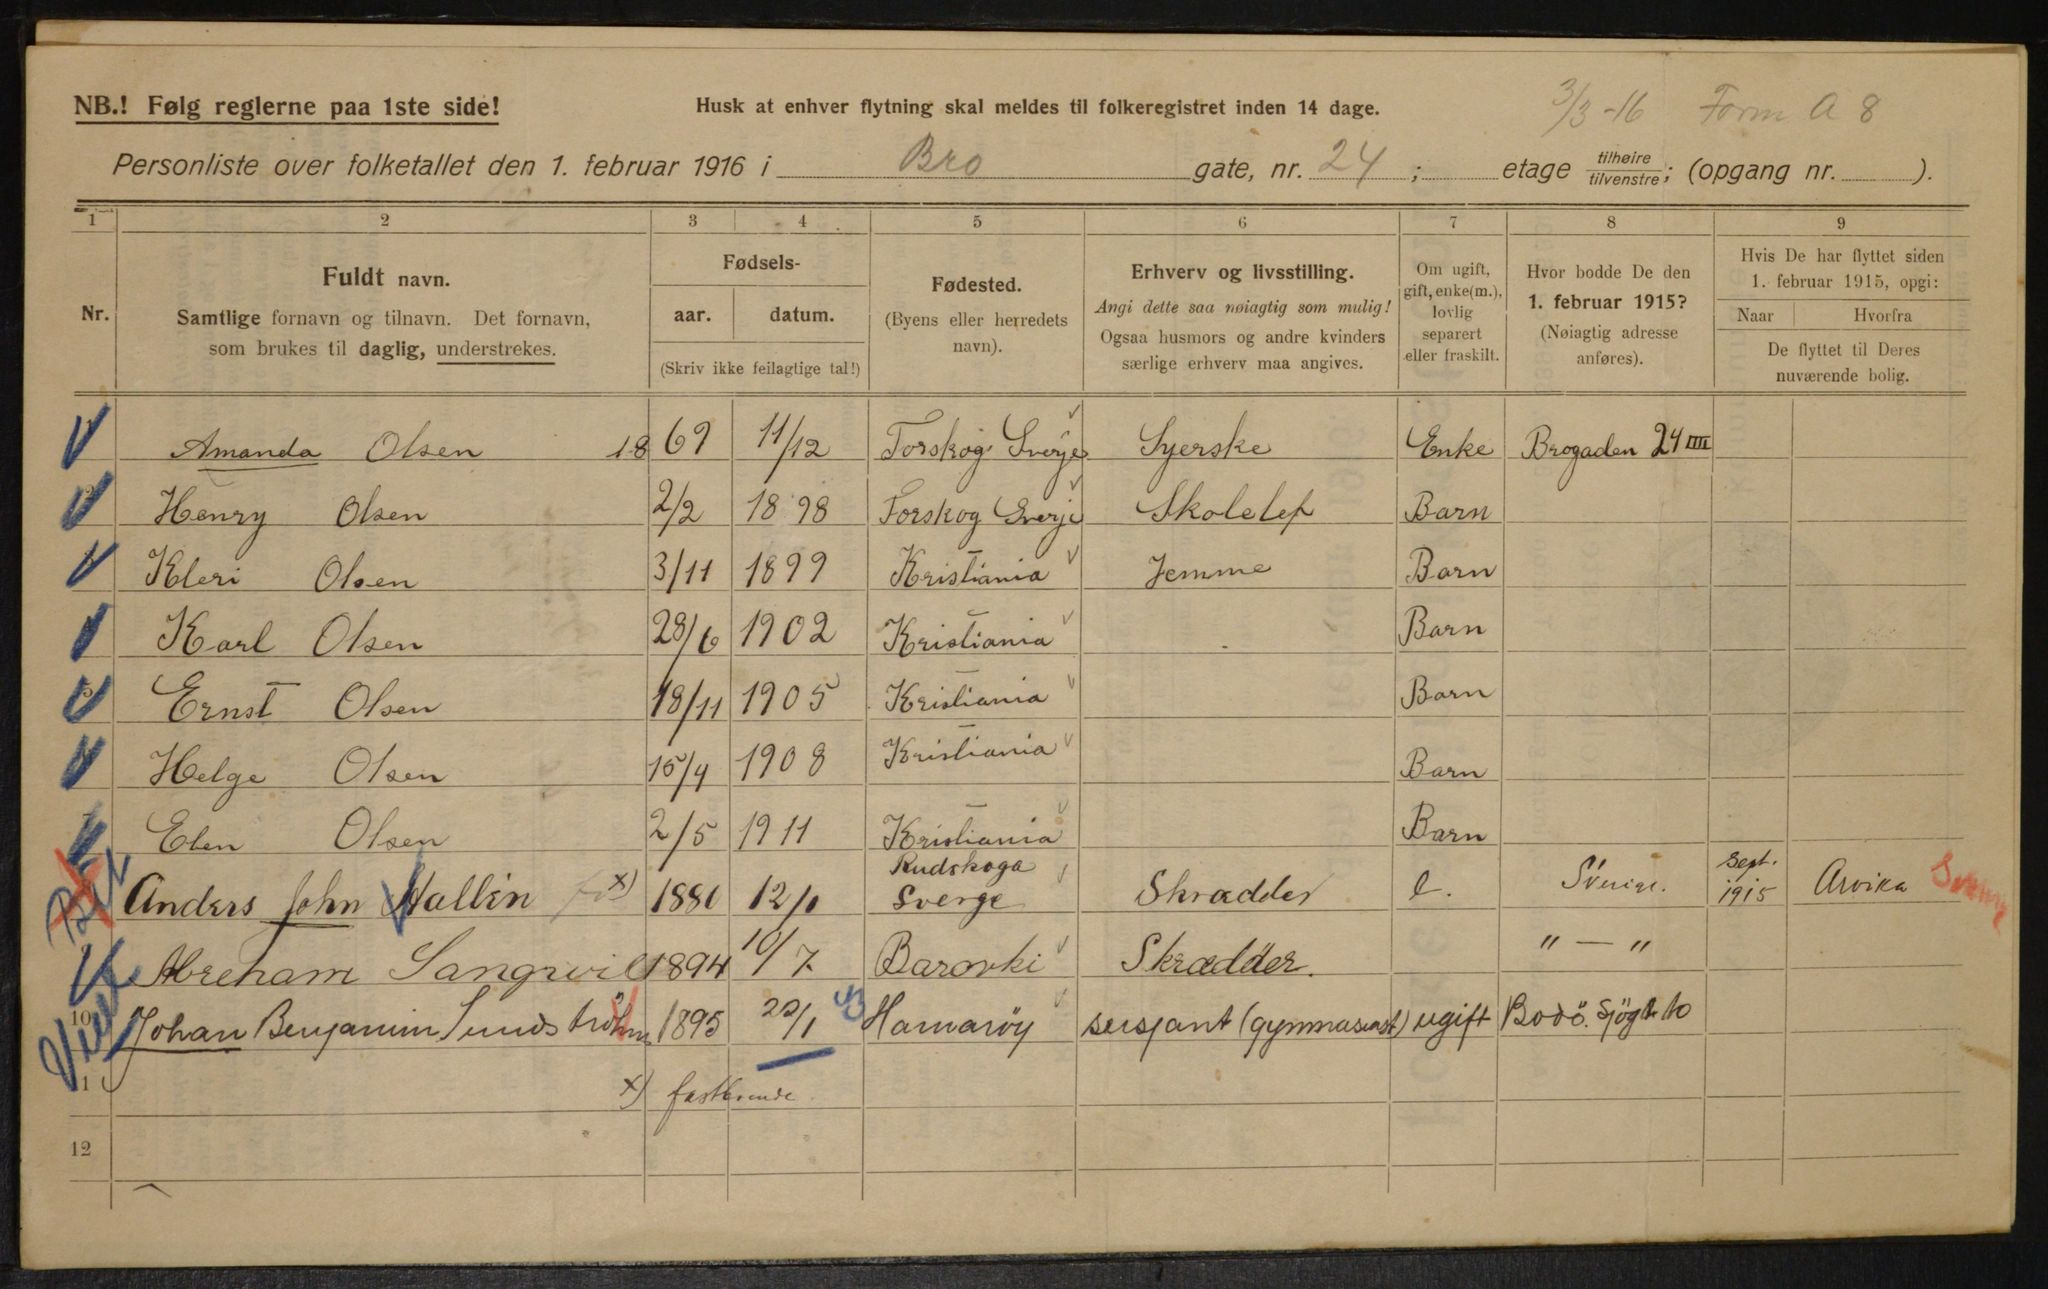 3/3-16 Form A 8
NB.! Følg reglerne paa 1ste side! Husk at enhver flytning skal meldes til folkeregistret inden 14 dage.
Personliste over folketallet den 1. februar 1916 i Bro gate, nr. 24 ; etage tilhøire/tilvenstre; (opgang nr. ).
1 2 3 4 5 6 7 8 9
Nr.
Fuldt navn.
Samtlige fornavn og tilnavn. Det fornavn,
som brukes til daglig, understrekes.
Fødsels-
aar. datum.
(Skriv ikke feilagtige tal!)
Fødested.
(Byens eller herredets
navn).
Erhverv og livsstilling.
Angi dette saa nøiagtig som mulig!
Ogsaa husmors og andre kvinders
særlige erhverv maa angives.
Om ugift,
gift, enke(m.),
lovlig
separert
eller fraskilt.
Hvor bodde De den
1. februar 1915?
(Nøiagtig adresse
anføres).
Hvis De har flyttet siden
1. februar 1915, opgi:
Naar Hvorfra
De flyttet til Deres
nuværende bolig.
Amanda Olsen 18 69 11/12 Forskog Sverje Syerske Enke Brogaden 24 IIII
Henry Olsen 2/2 1898 Forskog Sverje Skolelef Barn
Kleri Olsen 3/11 1899 Kristiania Jemme Barn
Karl Olsen 28/6 1902 Kristiania Barn
5 Ernst Olsen 18/11 1905 Kristiania Barn
Helge Olsen 15/4 1908 Kristiania Barn
Elen Olsen 2/5 1911 Kristiania Barn
Anders John Hallin x) 1880 12/1 Rudskoga Sverge Skrædder e. Sverige. Sept. 1915 Arvika
Abreham 1894 10/7 Barovki Skrædder. " — "
10 Johan Benjamin Sundström 1895 20/1 Hamarøy sersjant (gymnasiast) ugift Bodö. Sjögt. 10
11 x) fastboende.
12